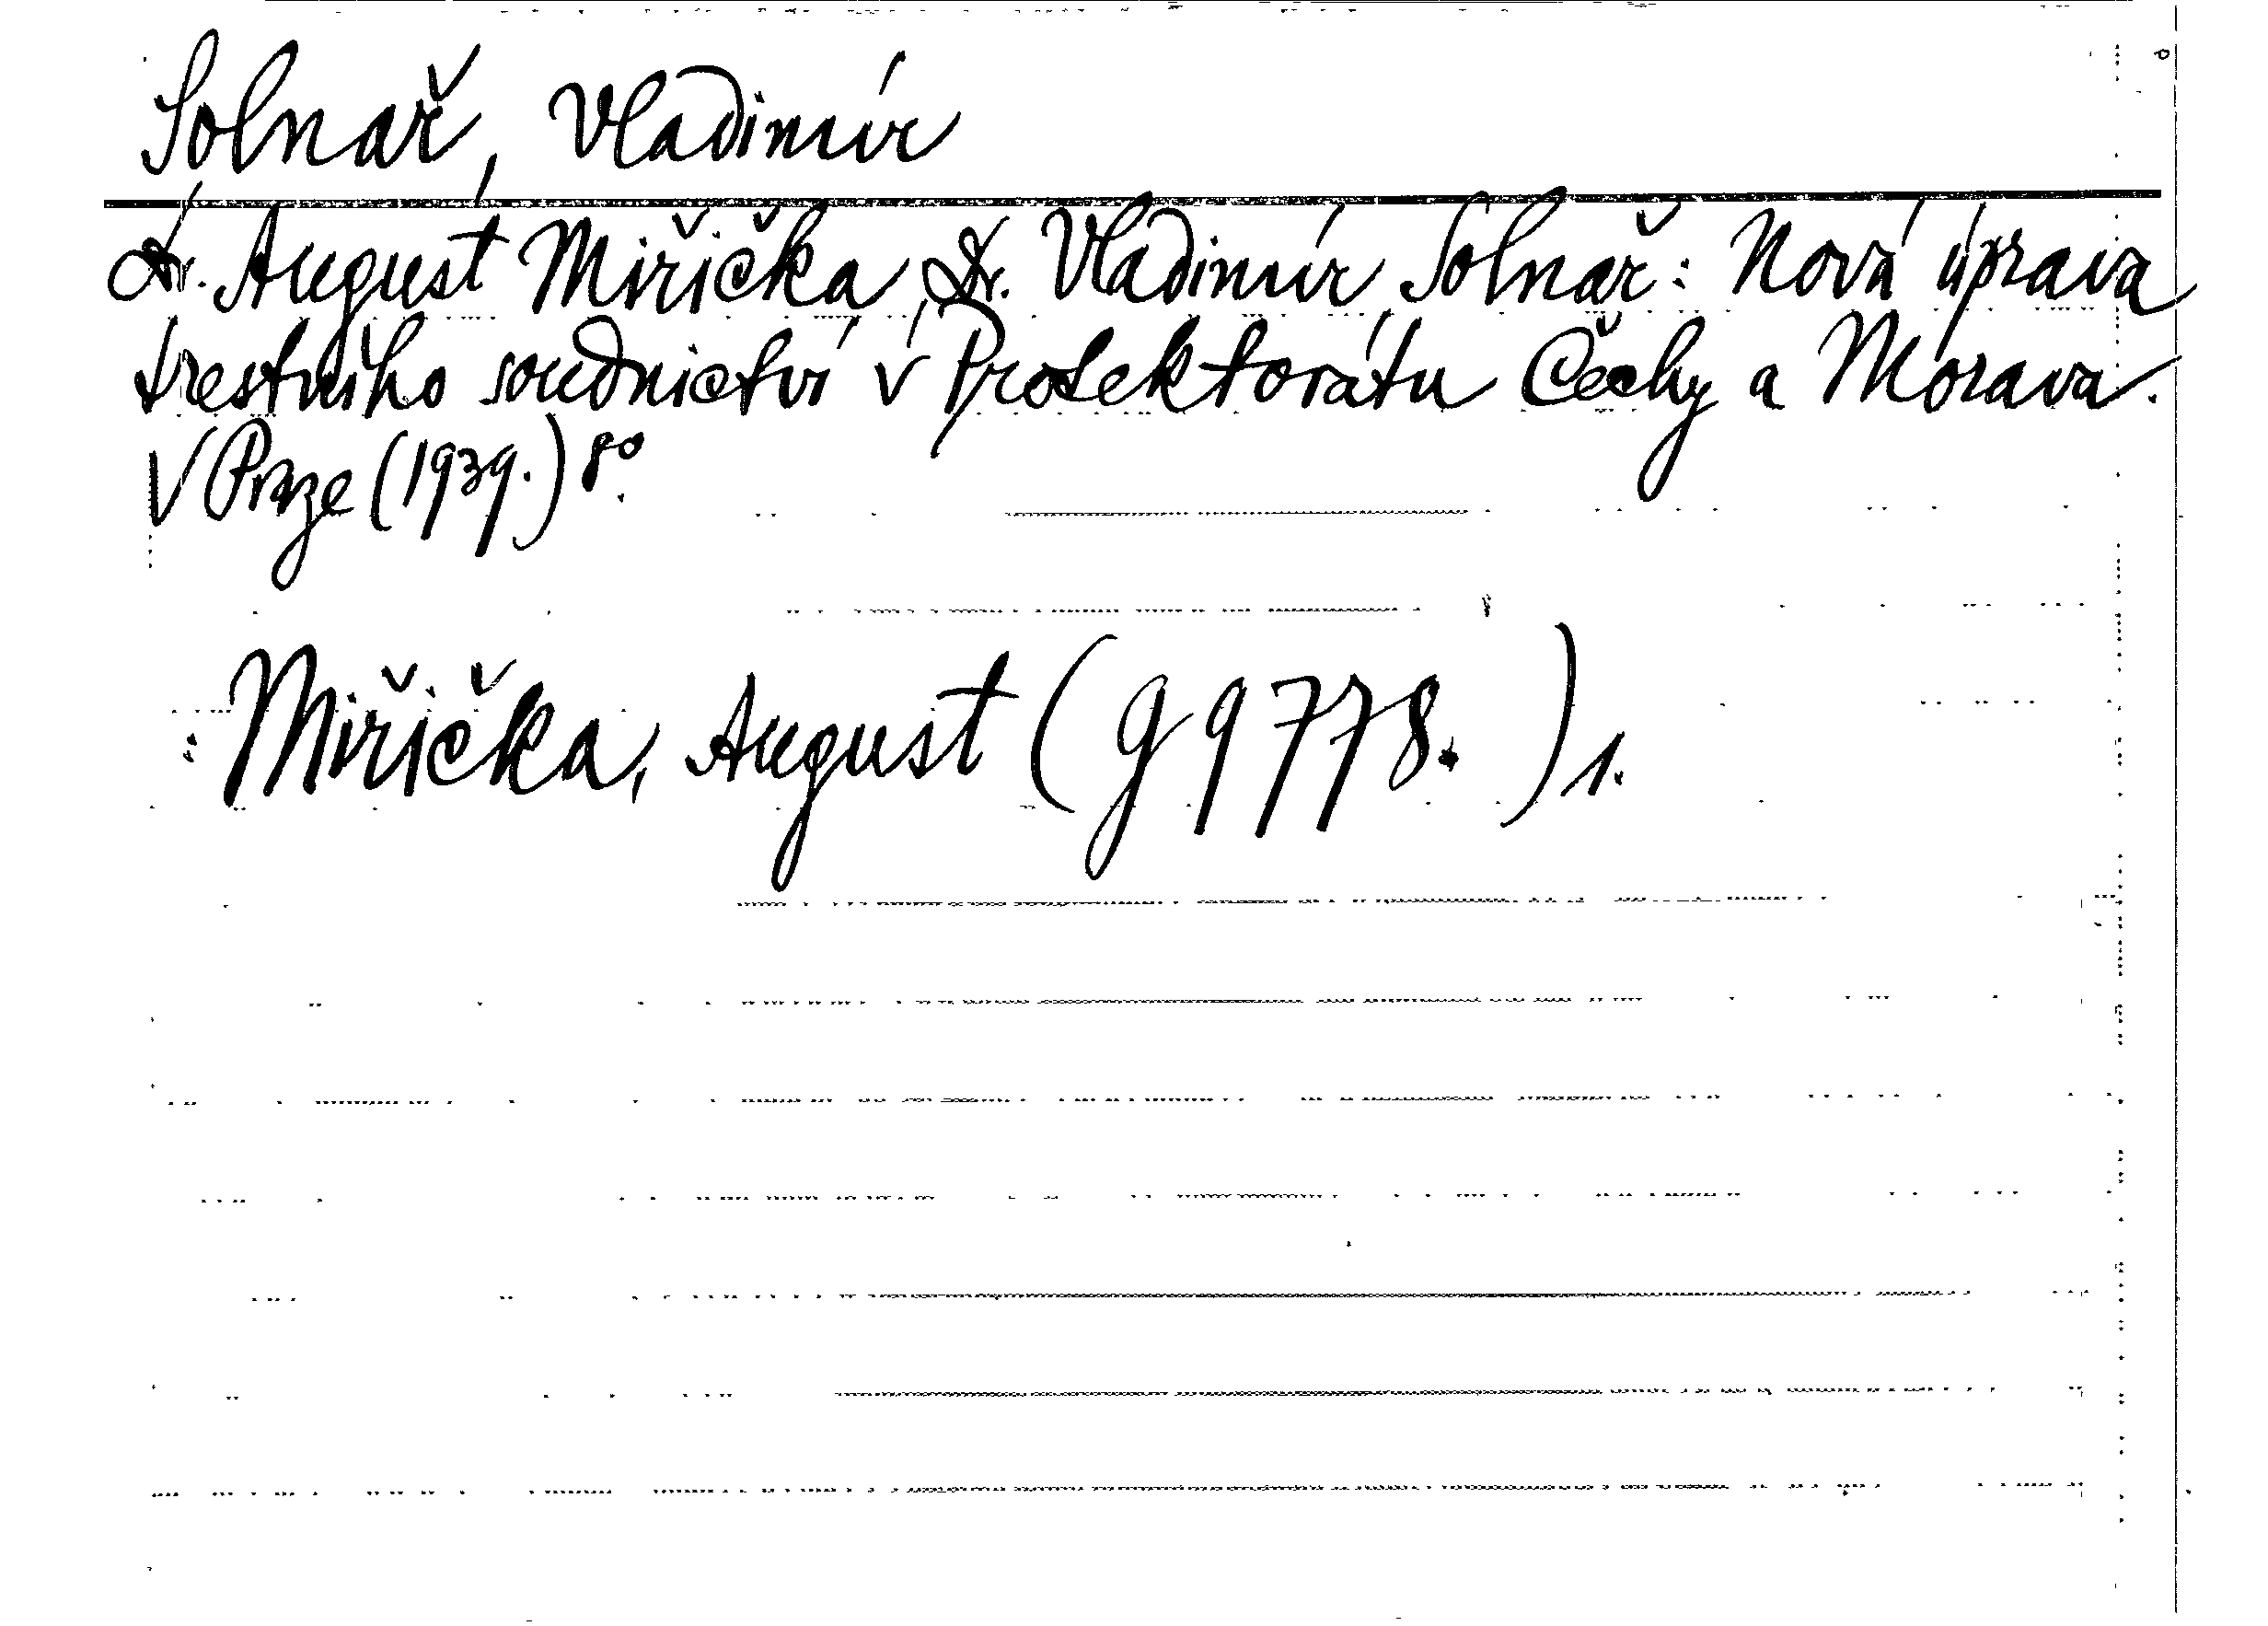 Solnař, Vladimír
Dr. August Miřička, Dr. Vladimír Solnař: Nová úprava
trestního soudnictví v Protektorátu Čechy a Morava.
V Praze (1939.) 8°.
Miřička, August (g 9778.) 1.